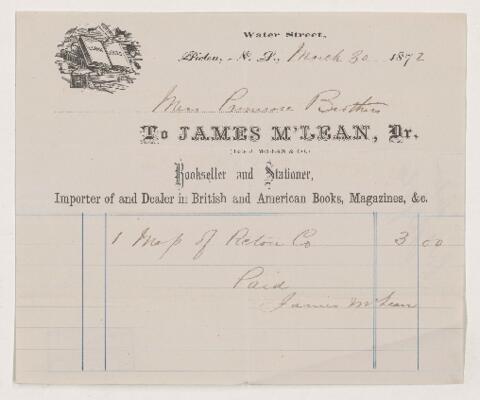 Water Street,
Pictou, N. S., March 30 1872
Messrs Primrose Brothers
To JAMES M'LEAN, Dr.
(Late J. McLEAN & Co.)
Bookseller and Stationer,
Importer of and Dealer in British and American Books, Magazines, &c.
1 Map of Pictou Co 3 00
Paid
James McLean